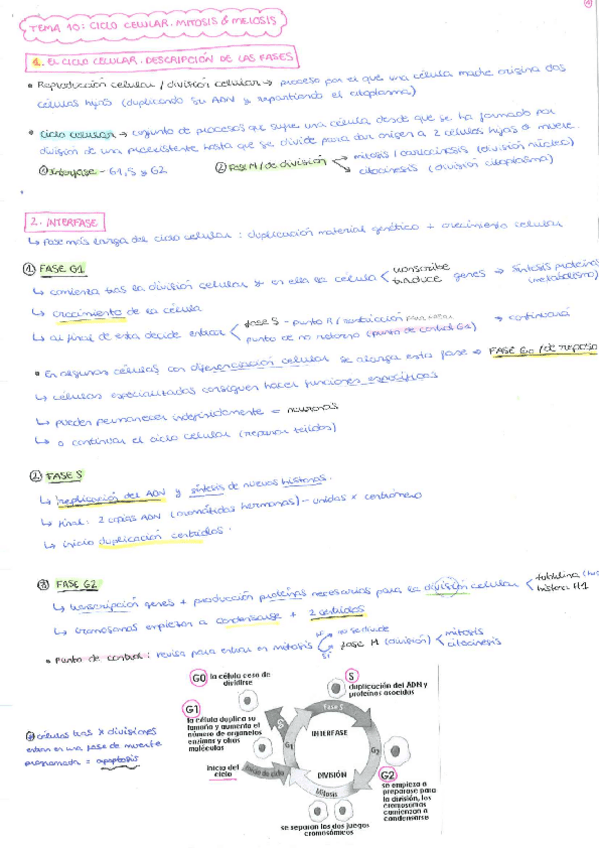 TEMA 10: CICLO CELULAR. MITOSIS & MEIOSIS
1. EL CICLO CELULAR. DESCRIPCIÓN DE LAS FASES
• Reproducción celular / división celular → proceso por el que una célula madre origina dos
células hijas (duplicando su ADN y repartiendo el citoplasma)
• Ciclo celular → conjunto de procesos que sufre una célula desde que se ha formado por
división de una preexistente hasta que se divide para dar origen a 2 células hijas o muere.
① Interfase - G1, S y G2 ② Fase M / de división mitosis / cariocinesis (división núcleo)
citocinesis (división citoplasma)
2. INTERFASE
↳ Fase más larga del ciclo celular: duplicación material genético + crecimiento celular
① FASE G1
↳ comienza tras la división celular y en ella la célula transcribe genes → síntesis proteínas
traduce (metabolismo)
↳ crecimiento de la célula
↳ al final de esta decide entrar fase S - punto R / restricción → continuará
punto de no retorno (punto de control G1)
• En algunas células con diferenciación celular se alarga esta fase → FASE G0 / de reposo
↳ células especializadas consiguen hacer funciones específicas
↳ pueden permanecer indefinidamente = neuronas
↳ o continuar el ciclo celular (reparar tejidos)
2. FASE S
↳ replicación del ADN y síntesis de nuevas histonas.
↳ final: 2 copias ADN (cromátidas hermanas) - unidas x centrómero
↳ inicio duplicación centriolos.
③ FASE G2
↳ transcripción genes + producción proteínas necesarias para la división celular tubulina
histona H1
↳ cromosomas empiezan a condensarse + 2 centriolos
• Punto de control: revisa para entrar en mitosis no se divide
sí fase M (división) mitosis
citocinesis
G0 la célula cesa de
dividirse
S
duplicación del ADN y
proteínas asociadas
G1
la célula duplica su
tamaño y aumenta el
número de organelos
enzimas y otras
moléculas
Fase S
INTERFASE
G1
G2
inicio del
ciclo
DIVISIÓN
Mitosis
G2
se empieza a
preparase para
la división, los
cromosomas
comienzan a
condensarse
se separan los dos juegos
cromosómicos
células tras x divisiones
entran en una fase de muerte
programada = apoptosis